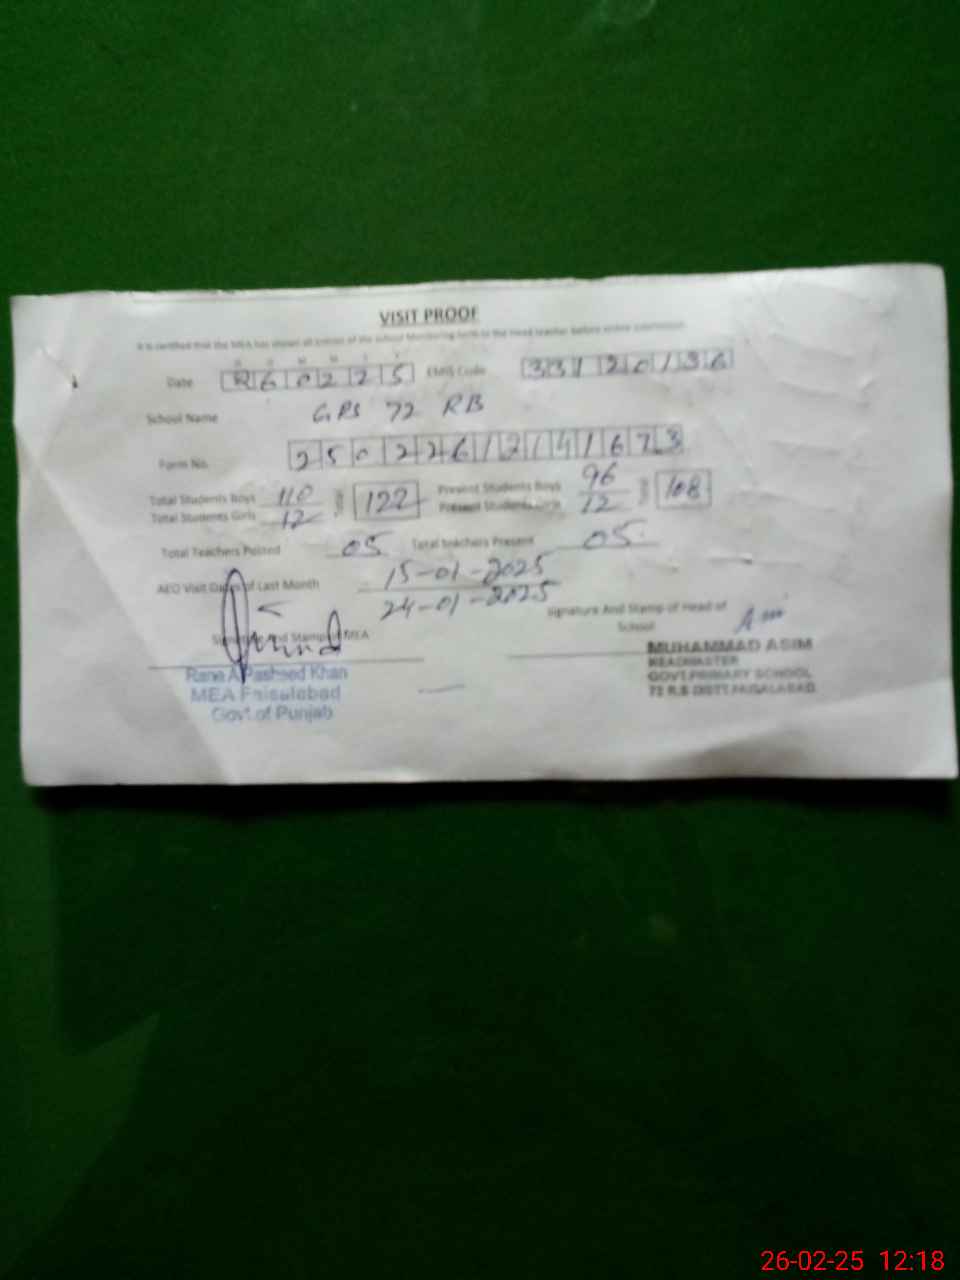 VISIT PROOF
It is certified that the MEA has shown all entries of the school Monitoring form to the Head teacher before online submission
D D M M Y Y
Date 260225 EMIS Code 33120136
School Name GPS 72 RB
Form No. 25022612141673
Total Students Boys 110 122 Present Students Boys 96 108
Total Students Girls 12 Present Students Girls 12
Total Teachers Posted 05 Total teachers Present 05
AEO Visit Dates of Last Month 15-01-2025
24-01-2025
Signature and Stamp of MEA
Signature And Stamp of Head of
School
Rana A Rasheed Khan
MEA Faisalabad
Govt of Punjab
MUHAMMAD ASIM
HEADMASTER
GOVT.PRIMARY SCHOOL
72 R.B DISTT.FAISALABAD
26-02-25 12:18